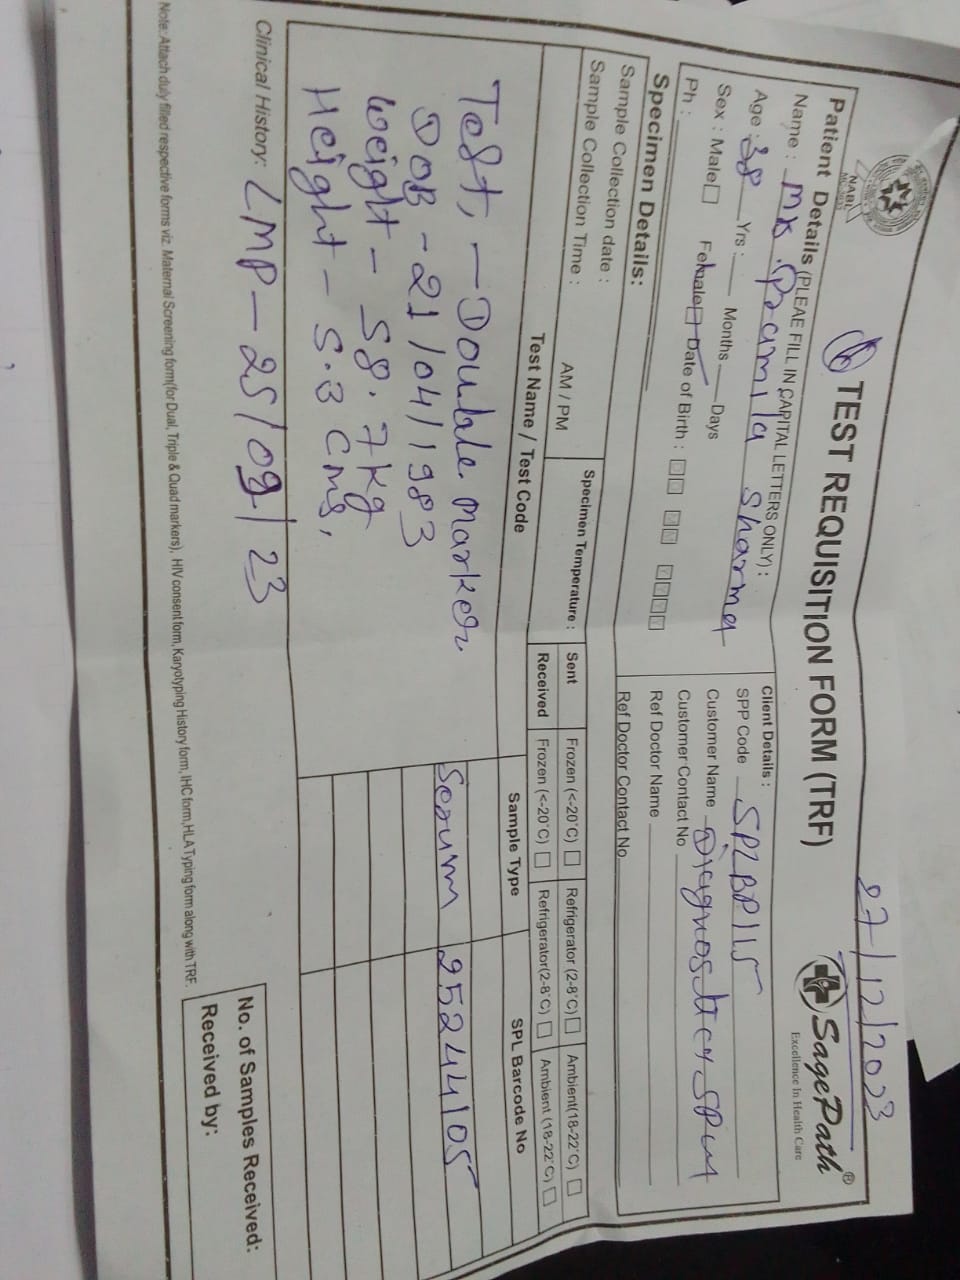 27/12/2023
6 TEST REQUISITION FORM (TRF)
SagePath®
Excellence In Health Care
NABL
Patient Details (PLEAE FILL IN CAPITAL LETTERS ONLY) :
Name : Mrs. Pramila Sharma
Age : 38 Yrs : Months Days
Sex : Male Female Date of Birth : D D M M Y Y Y Y
Ph :
Client Details :
SPP Code SPLBP115
Customer Name
Customer Contact No
Ref Doctor Name
Ref Doctor Contact No.
Specimen Details:
Sample Collection date :
Sample Collection Time : AM / PM
Specimen Temperature :
Sent Frozen (<-20°C) Refrigerator (2-8°C) Ambient(18-22°C)
Received Frozen (<-20°C) Refrigerator(2-8°C) Ambient (18-22°C)
Test Name / Test Code Sample Type SPL Barcode No
Test, - Double Marker Serum 25244105
DOB - 21/04/1983
weight - 58.7kg
Height - 5.3 cms,
Clinical History: LMP - 25/09/23
No. of Samples Received:
Received by:
Note: Attach duly filled respective forms viz. Maternal Screening form(for Dual, Triple & Quad markers), HIV consent form, Karyotyping History form, IHC form,HLA Typing form along with TRF.